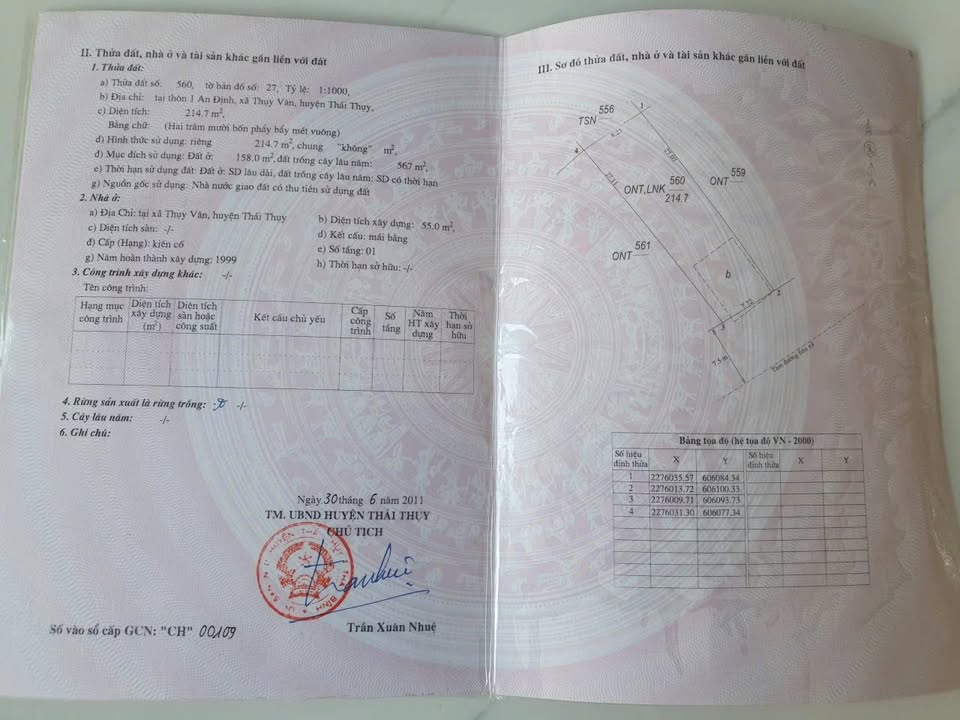 II. Thửa đất, nhà ở và tài sản khác gắn liền với đất
1. Thửa đất:
a) Thửa đất số: 560, tờ bản đồ số: 27, Tỷ lệ: 1:1000,
b) Địa chỉ: tại thôn 1 An Định, xã Thụy Văn, huyện Thái Thụy,
c) Diện tích: 214.7 m²,
Bằng chữ: (Hai trăm mười bốn phẩy bẩy mét vuông)
d) Hình thức sử dụng: riêng 214.7 m², chung "không" m²,
đ) Mục đích sử dụng: Đất ở: 158.0 m², đất trồng cây lâu năm: 567 m²,
e) Thời hạn sử dụng đất: Đất ở: SD lâu dài, đất trồng cây lâu năm: SD có thời hạn
g) Nguồn gốc sử dụng: Nhà nước giao đất có thu tiền sử dụng đất
2. Nhà ở:
a) Địa Chỉ: tại xã Thụy Văn, huyện Thái Thụy
b) Diện tích xây dựng: 55.0 m²,
c) Diện tích sàn: -/-
d) Kết cấu: mái bằng
đ) Cấp (Hạng): kiên cố
e) Số tầng: 01
g) Năm hoàn thành xây dựng: 1999
h) Thời hạn sở hữu: -/-
3. Công trình xây dựng khác: -/-
Tên công trình:
Hạng mục công trình Diện tích xây dựng (m²) Diện tích sàn hoặc công suất Kết cấu chủ yếu Cấp công trình Số tầng Năm HT xây dựng Thời hạn sở hữu
4. Rừng sản xuất là rừng trồng: -/-
5. Cây lâu năm: -/-
6. Ghi chú:
Ngày 30 tháng 6 năm 2011
TM. UBND HUYỆN THÁI THỤY
CHỦ TỊCH
Trần Xuân Nhuệ
Số vào sổ cấp GCN: "CH" 00109
III. Sơ đồ thửa đất, nhà ở và tài sản khác gắn liền với đất
TSN 556
1
8.23
4
27.03
27.41
ONT,LNK 560
214.7
ONT 559
ONT 561
b
7.72
2
3
7.5 m
Tim đường liên xã
Bảng tọa độ (hệ tọa độ VN - 2000)
Số hiệu đỉnh thửa X Y Số hiệu đỉnh thửa X Y
1 2276035.57 606084.34
2 2276013.72 606100.33
3 2276009.71 606093.73
4 2276031.30 606077.34